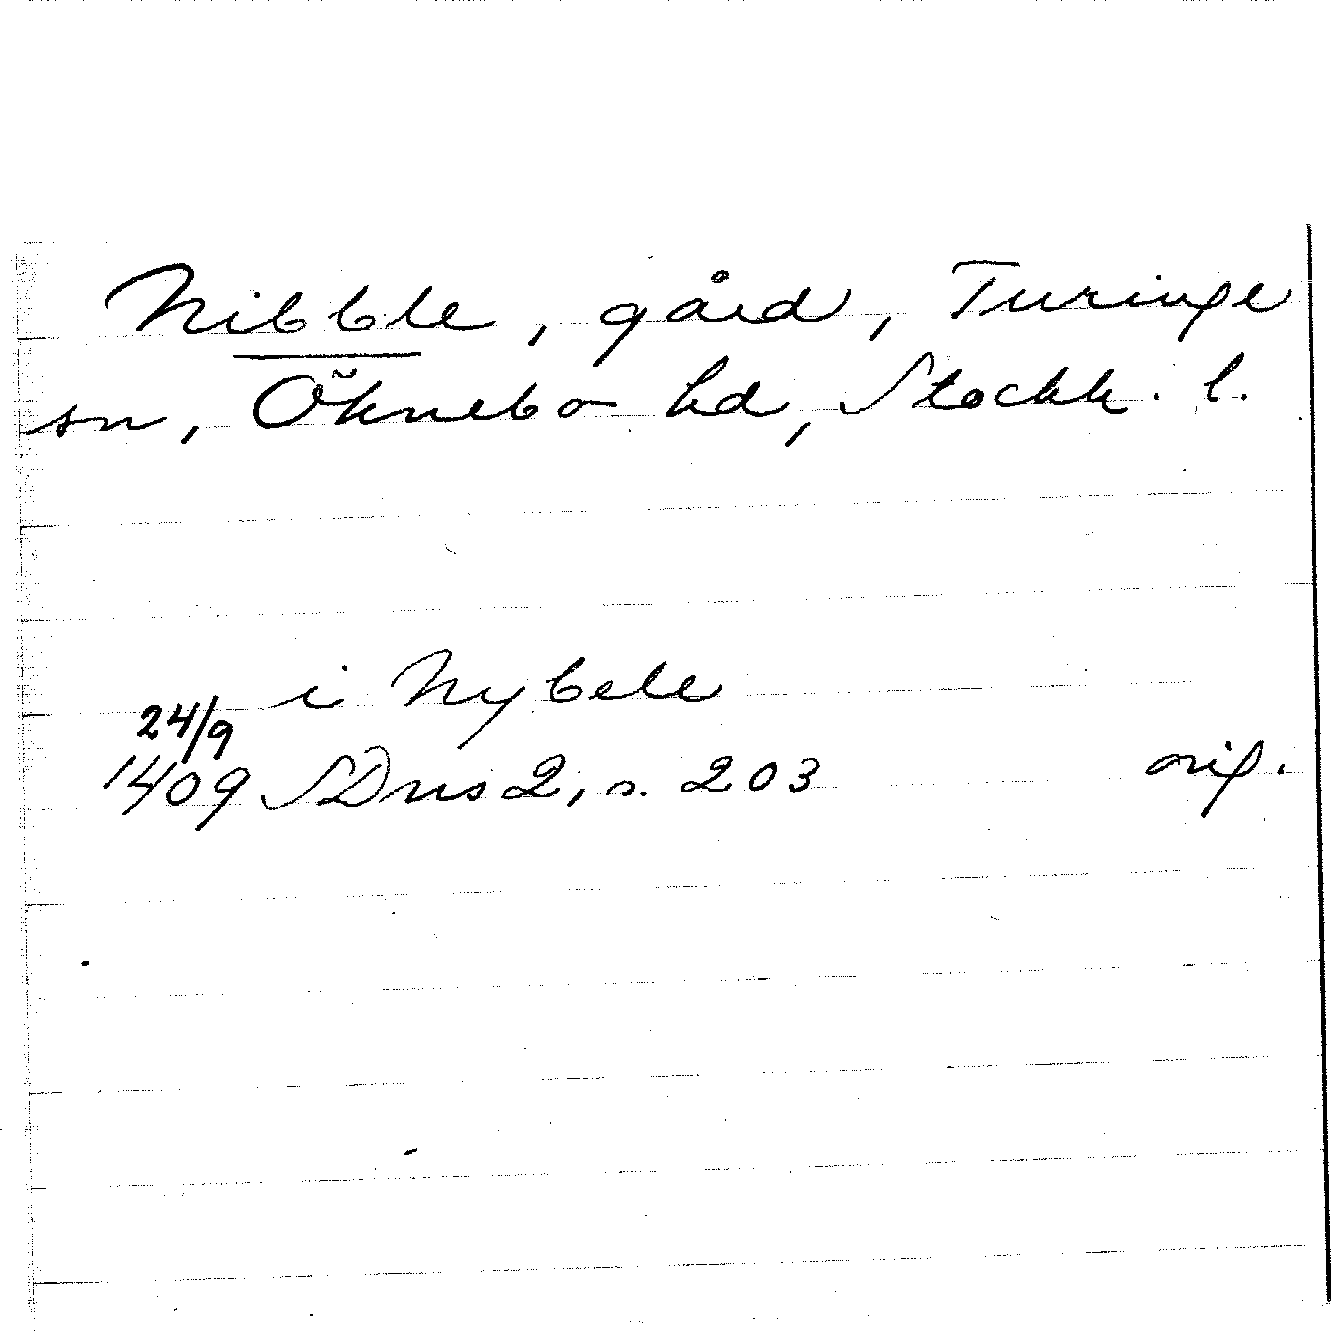 Nibble, gård, Turinge
sn, Öknebo hd, Stockh. l.
i Nybele
24/9
1409 SDns 2, s. 203 orig.